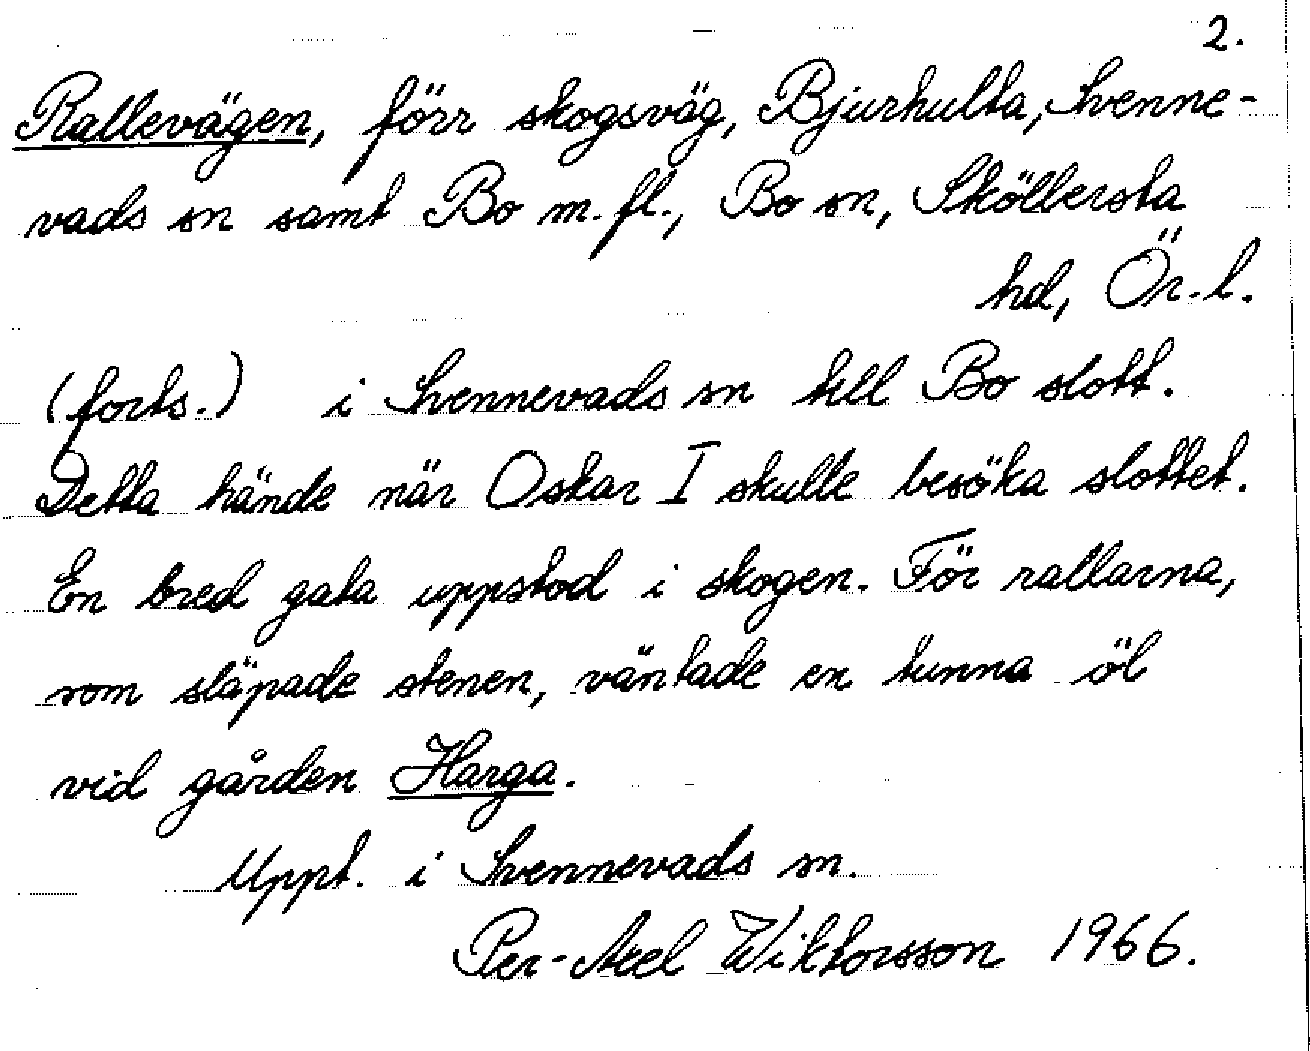 2.
Rallevägen, förr skogsväg, Bjurhulta, Svenne-
vads sn samt Bo m.fl., Bo sn, Sköllersta
hd, Ör.l.
(forts.) i Svennevads sn till Bo slott.
Detta hände när Oskar I skulle besöka slottet.
En bred gata uppstod i skogen. För rallarna,
som släpade stenen, väntade en tunna öl
vid gården Harga.
Uppt. i Svennevads sn.
Per-Axel Wiktorsson 1966.